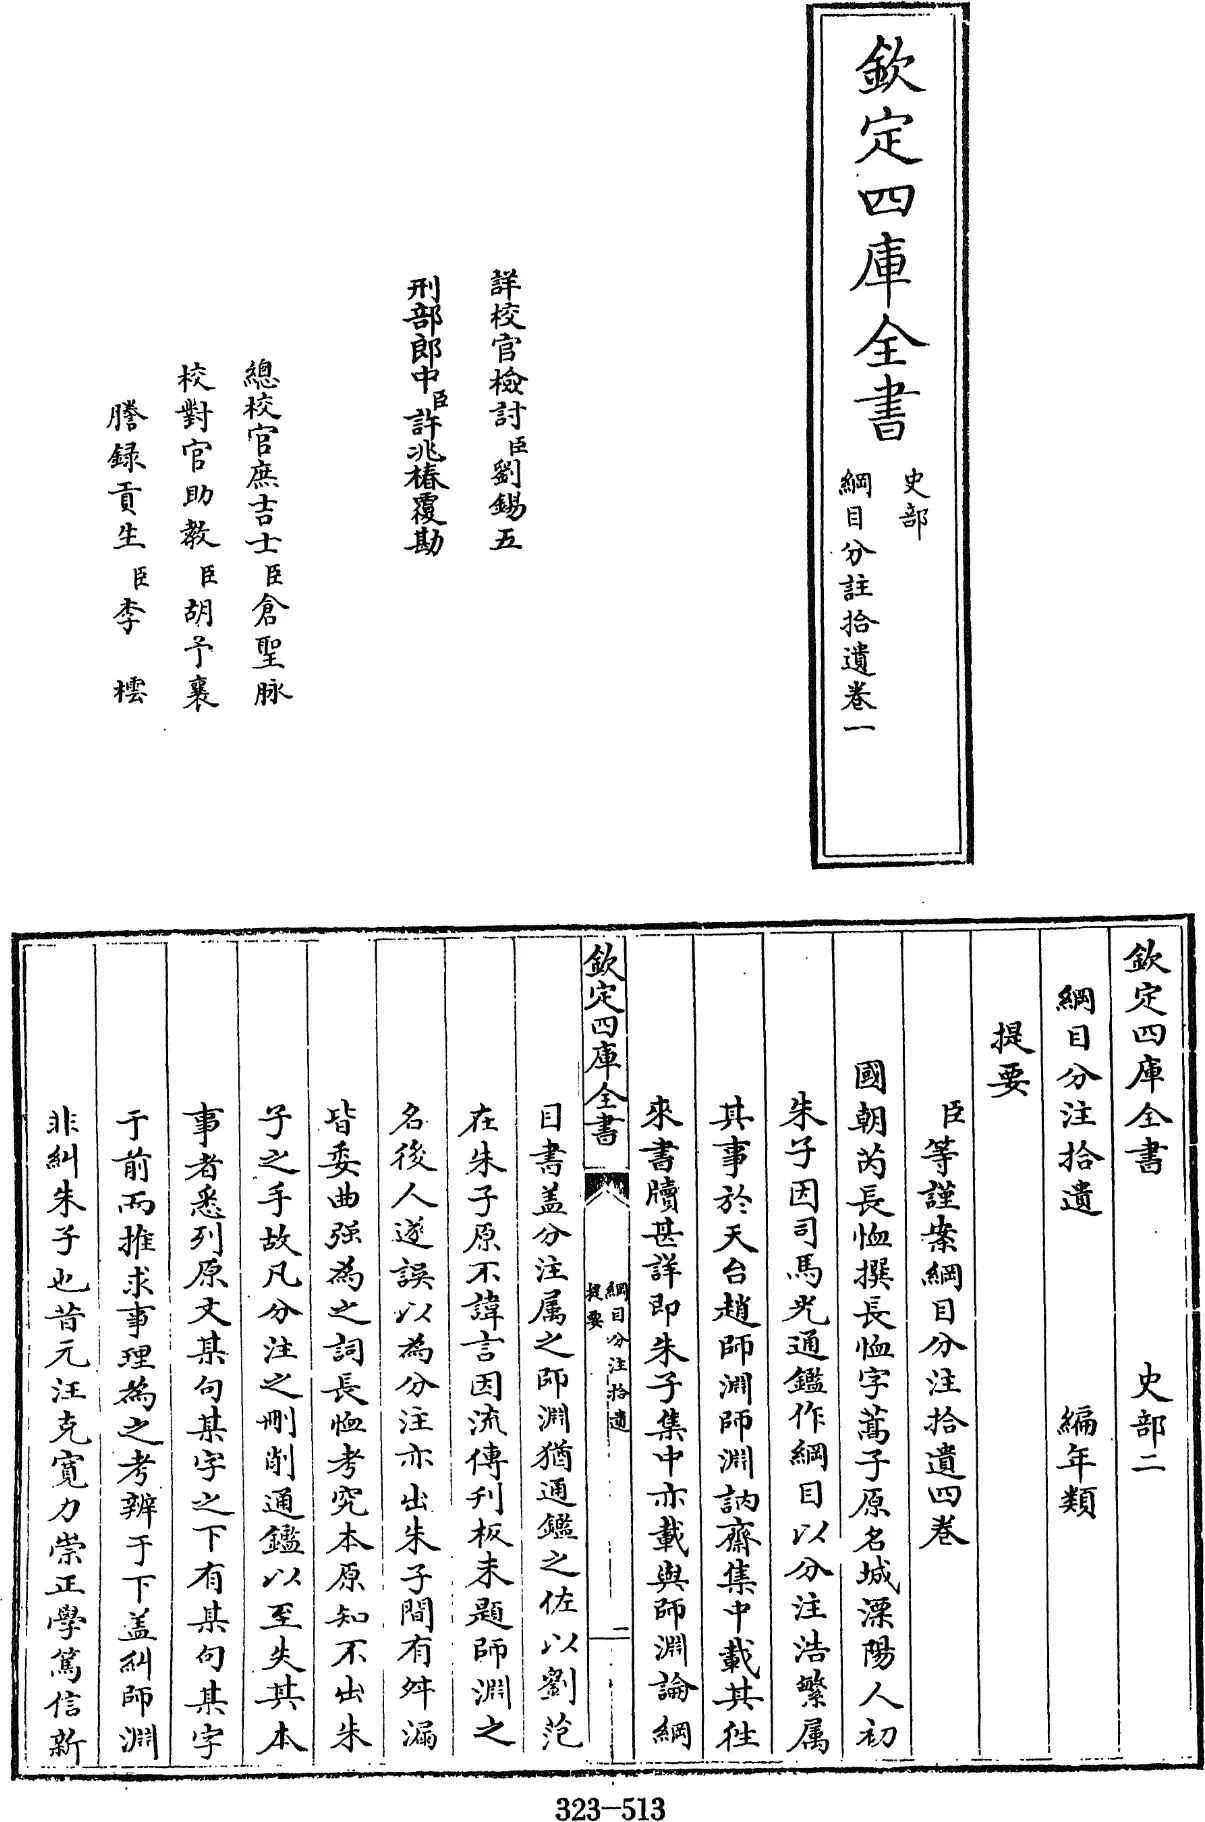 欽定四庫全書
史部
綱目分註拾遺卷一
詳校官檢討臣劉錫五
刑部郎中臣許兆椿覆勘
總校官庶吉士臣倉聖脉
校對官助教臣胡予襄
謄録貢生臣李橒
欽定四庫全書 史部二
綱目分注拾遺 編年類
提要
臣等謹案綱目分注拾遺四卷
國朝芮長恤撰長恤字蒿子原名城溧陽人初
朱子因司馬光通鑑作綱目以分注浩繁属
其事於天台趙師淵師淵訥齋集中載其徃
來書牘甚詳即朱子集中亦載與師淵論綱
欽定四庫全書
綱目分注拾遺
提要
一
目書盖分注属之師淵猶通鑑之佐以劉范
在朱子原不諱言因流傳刋板未題師淵之
名後人遂誤以為分注亦出朱子間有舛漏
皆委曲强為之詞長恤考究本原知不出朱
子之手故凡分注之刪削通鑑以至失其本
事者悉列原文某句某字之下有某句某字
于前而推求事理為之考辨于下盖糾師淵
非糾朱子也昔元汪克寛力崇正學篤信新
323-513